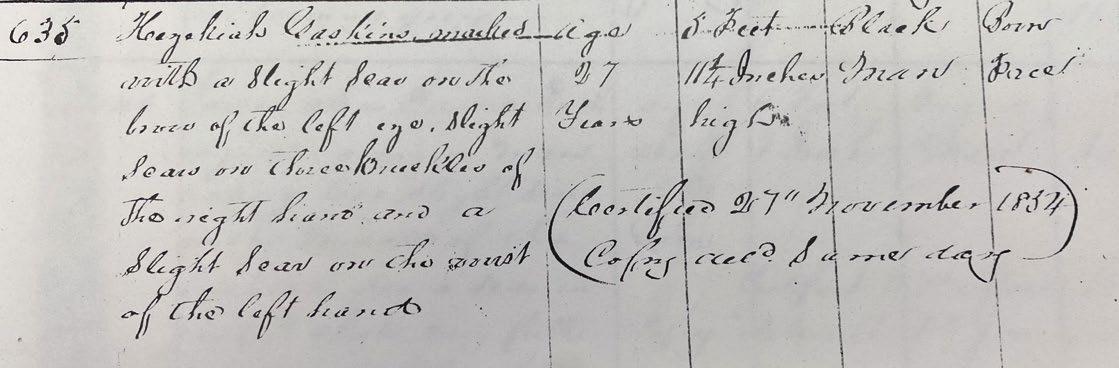 635 Hezekiah Gaskins, marked age 5 Feet Black Born
with a slight Scar on the 27 11¼ Inches man Free
brow of the left eye, slight Years high
Scars on three knuckles of
the right hand and a (Certified 27" November 1854
slight scar on the wrist Copy decd Same day)
of the left hand